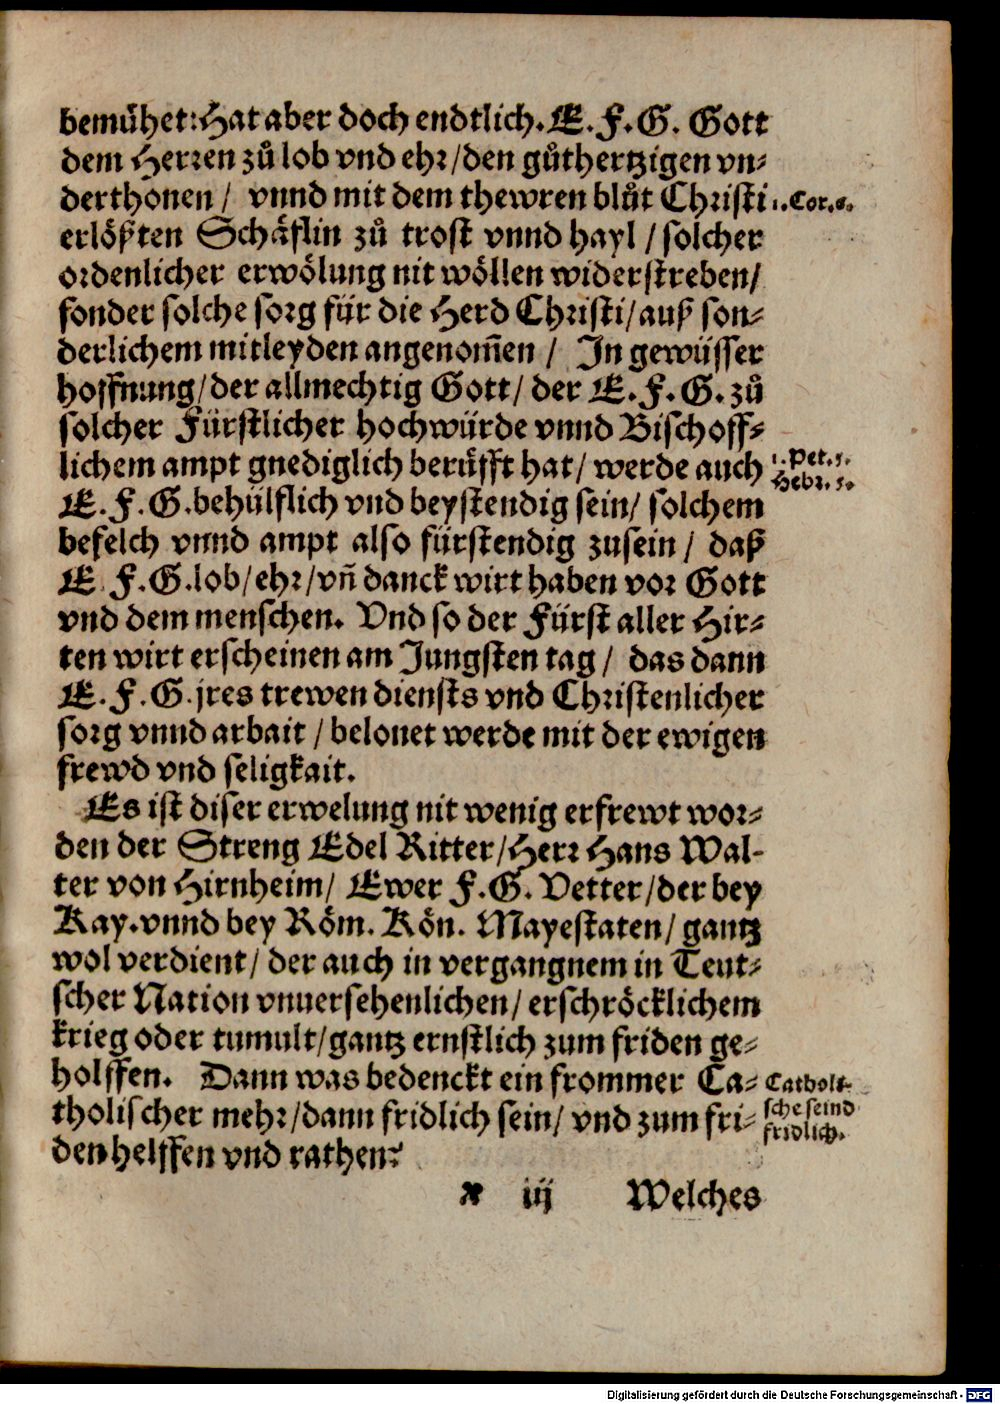 bemuͤhet: Hat aber doch endtlich. E. F. G. Gott
dem Herren zuͦ lob vnd ehr/den guͦthertzigen vn-
derthonen/ vnnd mit dem thewren bluͦt Christi
1. Cor. 6.
erloͤßten Schaͤflin zuͦ trost vnnd hayl/solcher
ordenlicher erwoͤlung nit woͤllen widerstreben/
sonder solche sorg für die Herd Christi/auß son-
derlichem mitleyden angenom̃en/ In gewüsser
hoffnung/der allmechtig Gott/der E. F. G. zuͦ
solcher Fürstlicher hochwürde vnnd Bischoff-
lichem ampt gnediglich beruͤfft hat/ werde auch
1. Pet. 5.
Hebr. 5.
E. F. G. behülflich vnd beystendig sein/ solchem
befelch vnnd ampt also fürstendig zusein/ daß
E F. G. lob/ehr/vñ danck wirt haben vor Gott
vnd dem menschen. Vnd so der Fürst aller Hir-
ten wirt erscheinen am Jungsten tag/ das dann
E. F. G. jres trewen diensts vnd Christenlicher
sorg vnnd arbait/belonet werde mit der ewigen
frewd vnd seligkait.
Es ist diser erwelung nit wenig erfrewt wor-
den der Streng Edel Ritter/Herr Hans Wal-
ter von Hirnheim/ Ewer F. G. Vetter/der bey
Kay. vnnd bey Roͤm. Koͤn. Mayestaten/gantz
wol verdient/der auch in vergangnem in Teut-
scher Nation vnuersehenlichen/erschroͤcklichem
krieg oder tumult/gantz ernstlich zum friden ge-
holffen. Dann was bedenckt ein frommer Ca-
tholischer mehr/dann fridlich sein/ vnd zum fri-
Catholi-
sche seind
fridlich.
den helffen vnd rathen?
* iij Welches
Digitalisierung gefördert durch die Deutsche Forschungsgemeinschaft - DFG